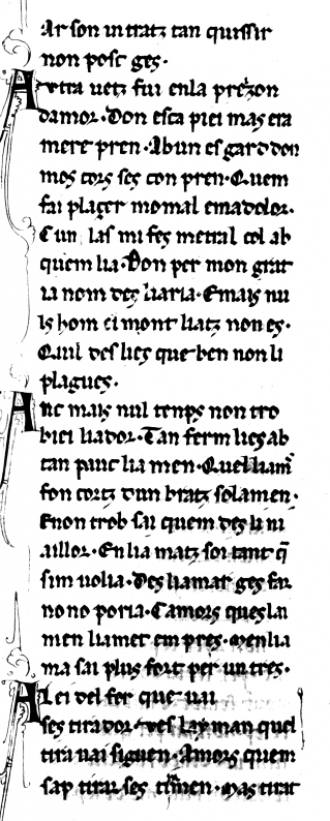 Ar son intratz tan quissir
non posc ges.
Autra uetz fui enla prezon
damor. Don esca piei mas era
mere pren. Abun esgard don
mos cors ses con pren. Quem
fai plazer mo mal ema dolor.
Cun las mi fes metral col ab
quem lia. Don per mon grat
ia nom des liaria. Emais nu
ls hom el mont liatz non es.
Quil des lies que ben non li
plagues.
Anc mais nul temps non tro
biei liador. Tan ferm lies ab
tan pauc lia men. Quel liam
fon cortz dun bratz solamen.
Enon trob sai quem des li ni
aillor. Enlia matz soi tant q̄
sim uolia. Des liamar ges far
no no poria. Camors ques la
men liamet em pres. Men lia
ma sai plus fort per un tres.
A lei del fer que uai
ses tirador. Ves layman quel
tira uai siguen. Amors quem
sap tirar ses men. Mas tirat